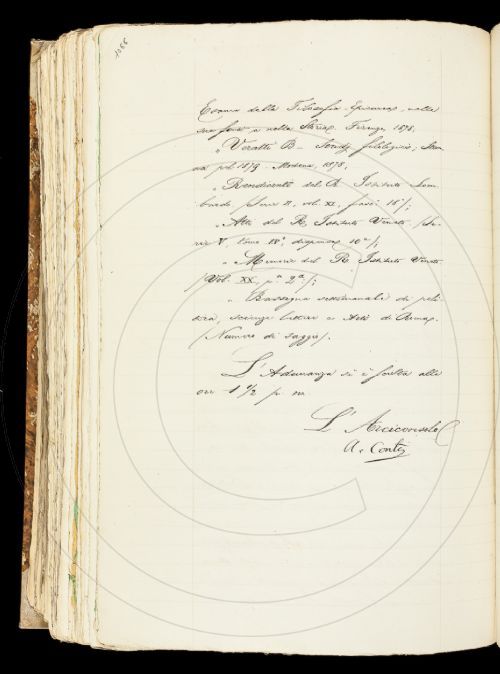 1086
Esame della Filosofia Epicurea, nelle
sue fonti e nella Storia. Firenze 1878.
„ Veratti B — Studj filologici, Stren-
na pel 1879. Modena, 1878;
„ Rendiconti del R. Istituto Lom-
bardo /Serie II, vol. XI, fasc. 18°/;
„ Atti del R. Istituto Veneto /Se-
rie V, tomo IV°, dispensa 10ª/;
„ Memorie del R. Istituto Veneto
/Vol. XX, pª 2ª/;
„ Rassegna settimanale di poli-
tica, scienze, lettere e Arti di Roma.
/Numero di saggio/.
L'Adunanza si è sciolta alle
ore 1 1/2 p. m.
L'Arciconsolo
A. Conti